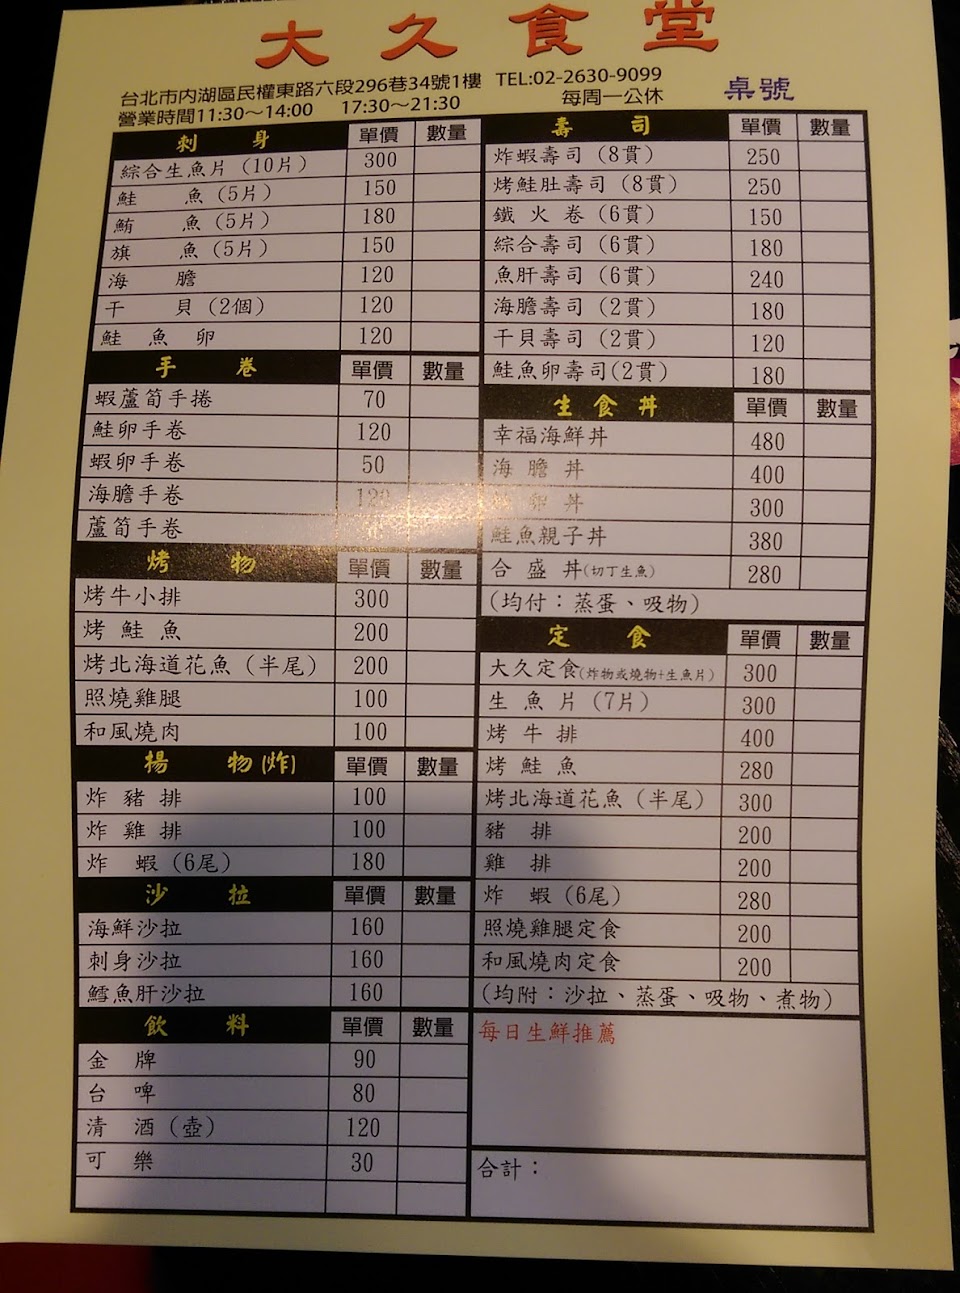 大久食堂
台北市內湖區民權東路六段296巷34號1樓 TEL:02-2630-9099
營業時間11:30～14:00 17:30～21:30 每周一公休 桌號
刺身 單價 數量
綜合生魚片(10片) 300
鮭魚(5片) 150
鮪魚(5片) 180
旗魚(5片) 150
海膽 120
干貝(2個) 120
鮭魚卵 120
手卷 單價 數量
蝦蘆筍手捲 70
鮭卵手卷 120
蝦卵手卷 50
海膽手卷 120
蘆筍手卷
烤物 單價 數量
烤牛小排 300
烤鮭魚 200
烤北海道花魚(半尾) 200
照燒雞腿 100
和風燒肉 100
揚物(炸) 單價 數量
炸豬排 100
炸雞排 100
炸蝦(6尾) 180
沙拉 單價 數量
海鮮沙拉 160
刺身沙拉 160
鱈魚肝沙拉 160
飲料 單價 數量
金牌 90
台啤 80
清酒(壺) 120
可樂 30
壽司 單價 數量
炸蝦壽司(8貫) 250
烤鮭肚壽司(8貫) 250
鐵火卷(6貫) 150
綜合壽司(6貫) 180
魚肝壽司(6貫) 240
海膽壽司(2貫) 180
干貝壽司(2貫) 120
鮭魚卵壽司(2貫) 180
生食丼 單價 數量
幸福海鮮丼 480
海膽丼 400
卵丼 300
鮭魚親子丼 380
合盛丼(切丁生魚) 280
(均付：蒸蛋、吸物)
定食 單價 數量
大久定食(炸物或燒物+生魚片) 300
生魚片(7片) 300
烤牛排 400
烤鮭魚 280
烤北海道花魚(半尾) 300
豬排 200
雞排 200
炸蝦(6尾) 280
照燒雞腿定食 200
和風燒肉定食 200
(均附：沙拉、蒸蛋、吸物、煮物)
每日生鮮推薦
合計：